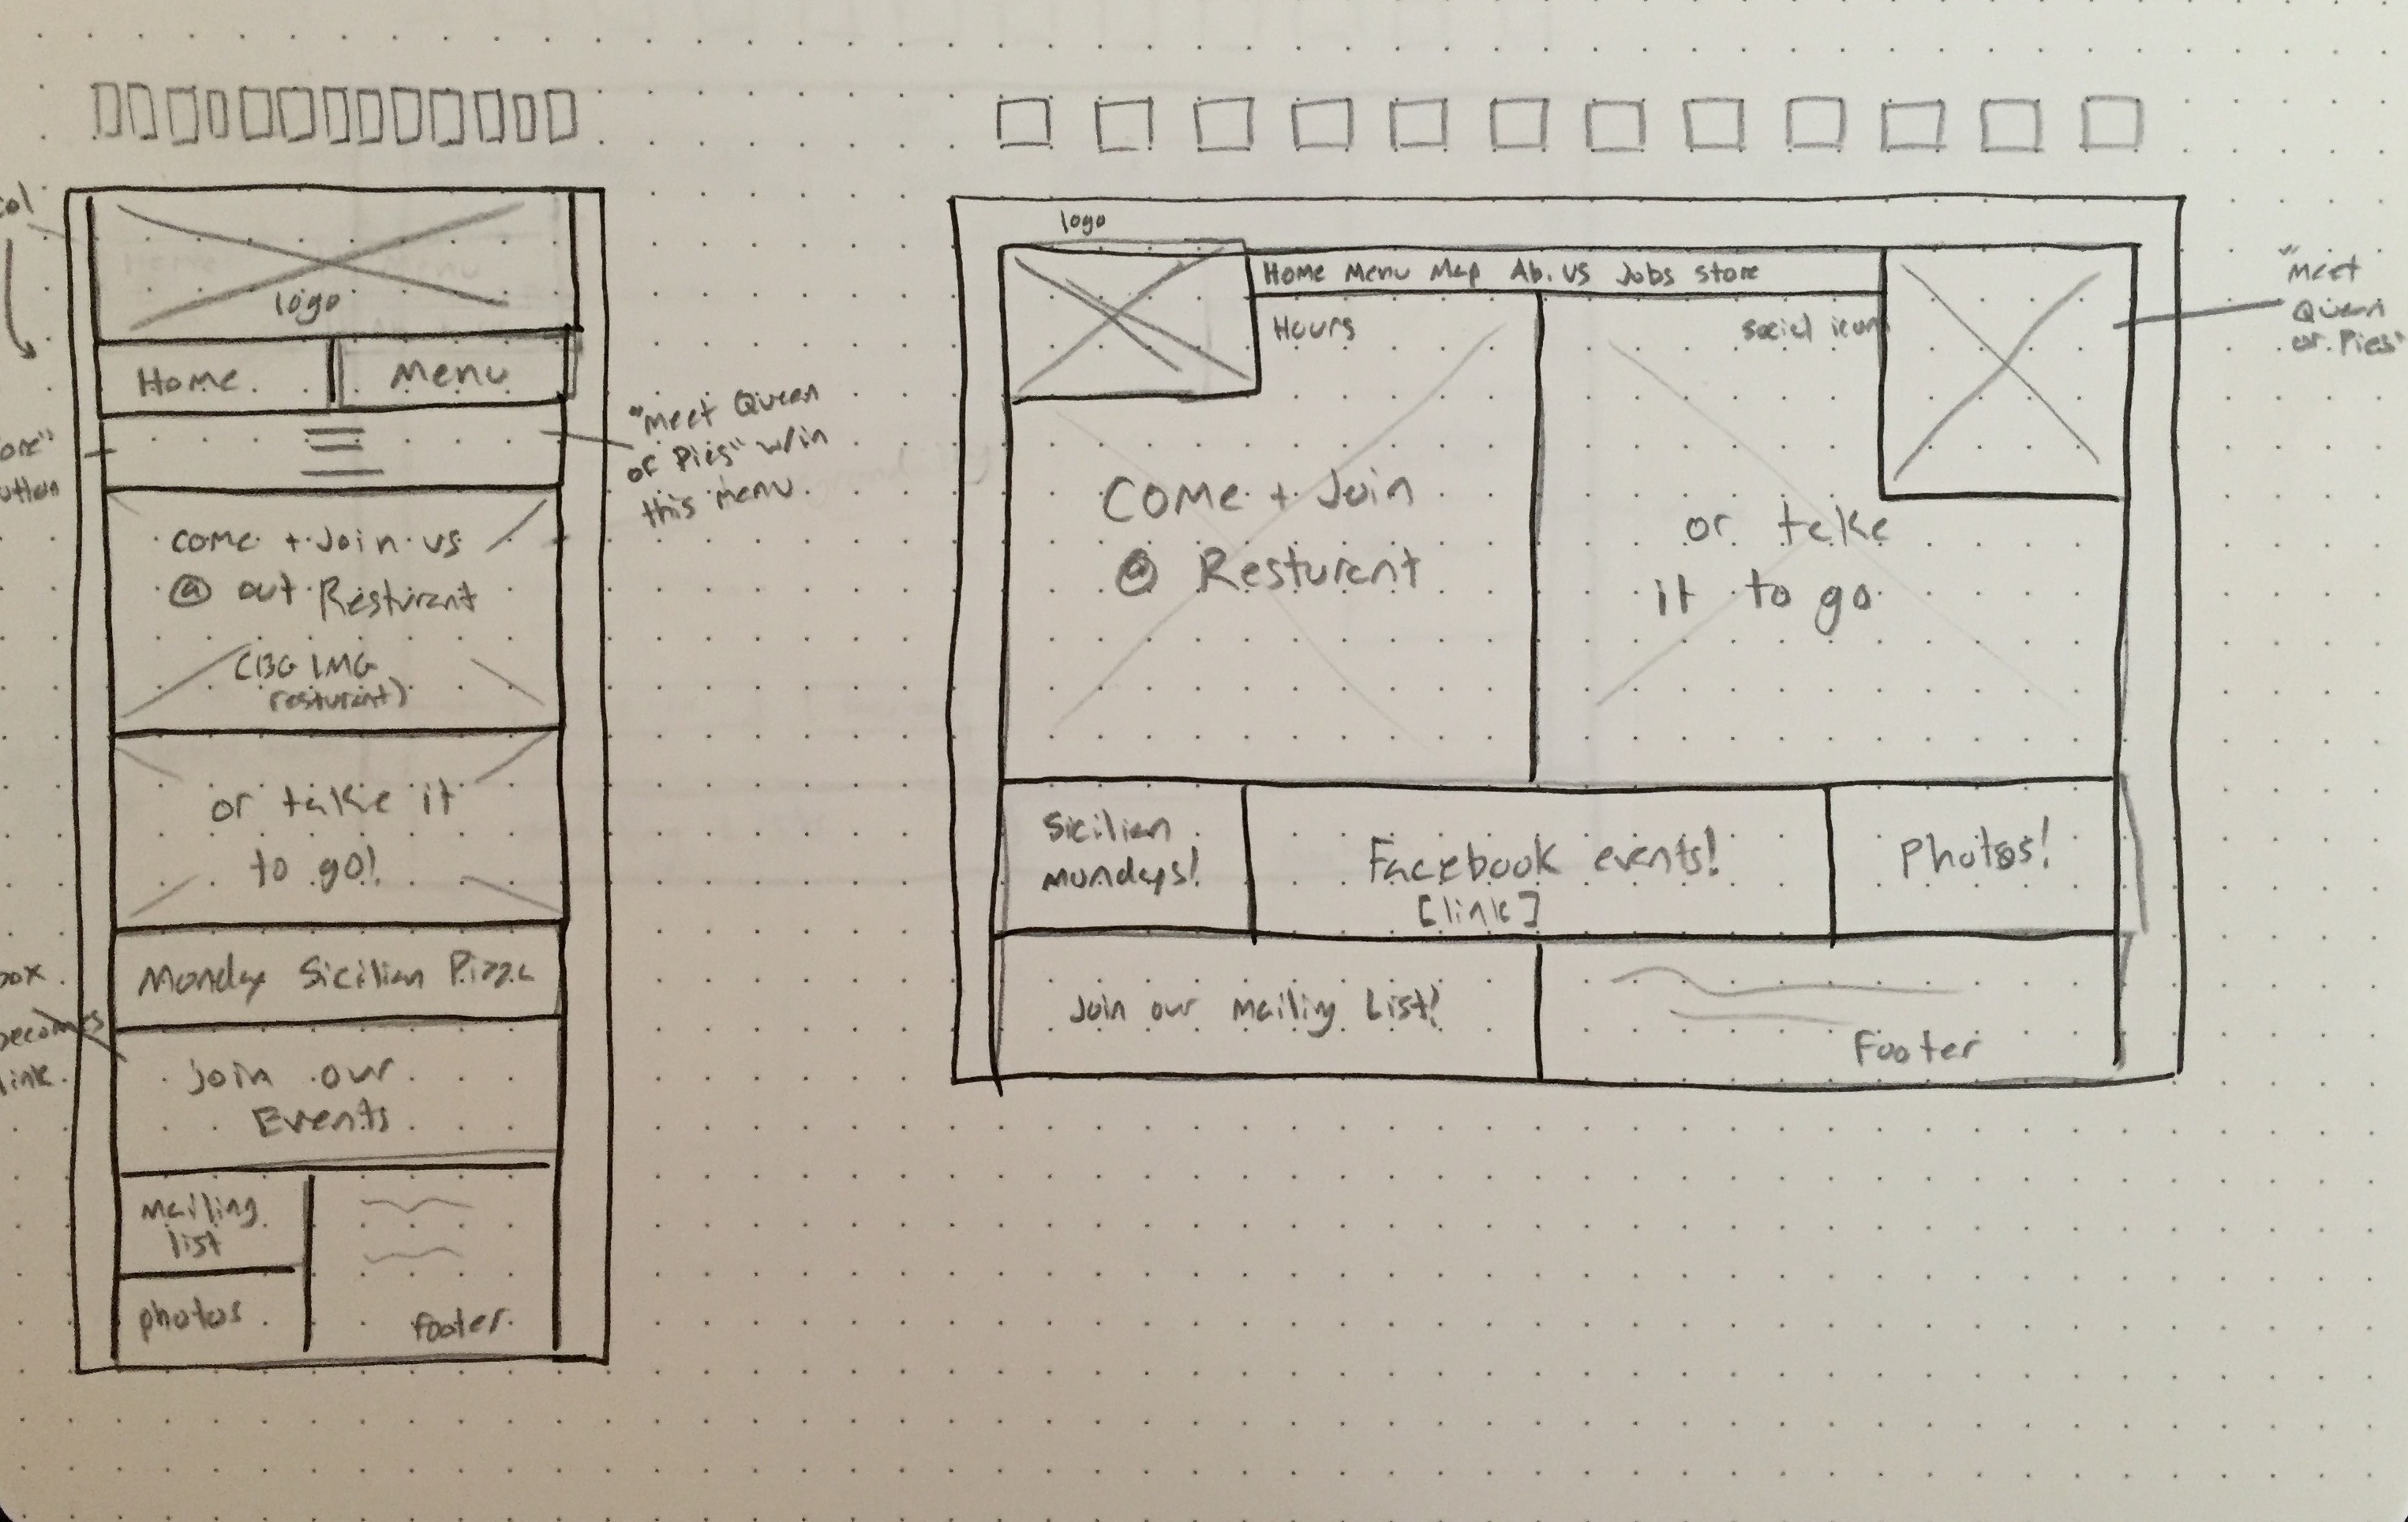 col
logo
Home
Menu
"Meet Queen
of Pies" w/in
this menu.
ore"
utton
come + Join us
@ out Resturant
(BG IMG
resturant)
or take it
to go!
Monday Sicilian Pizza
box
becomes
link.
Join our
Events
Mailing
list
photos
footer
logo
Home Menu Map Ab. US Jobs Store
Hours
social icon
"Meet
Queen
of Pies"
Come + Join
@ Resturant
or take
it to go
Sicilian
Mondays!
Facebook events!
[link]
Photos!
Join our Mailing List!
Footer